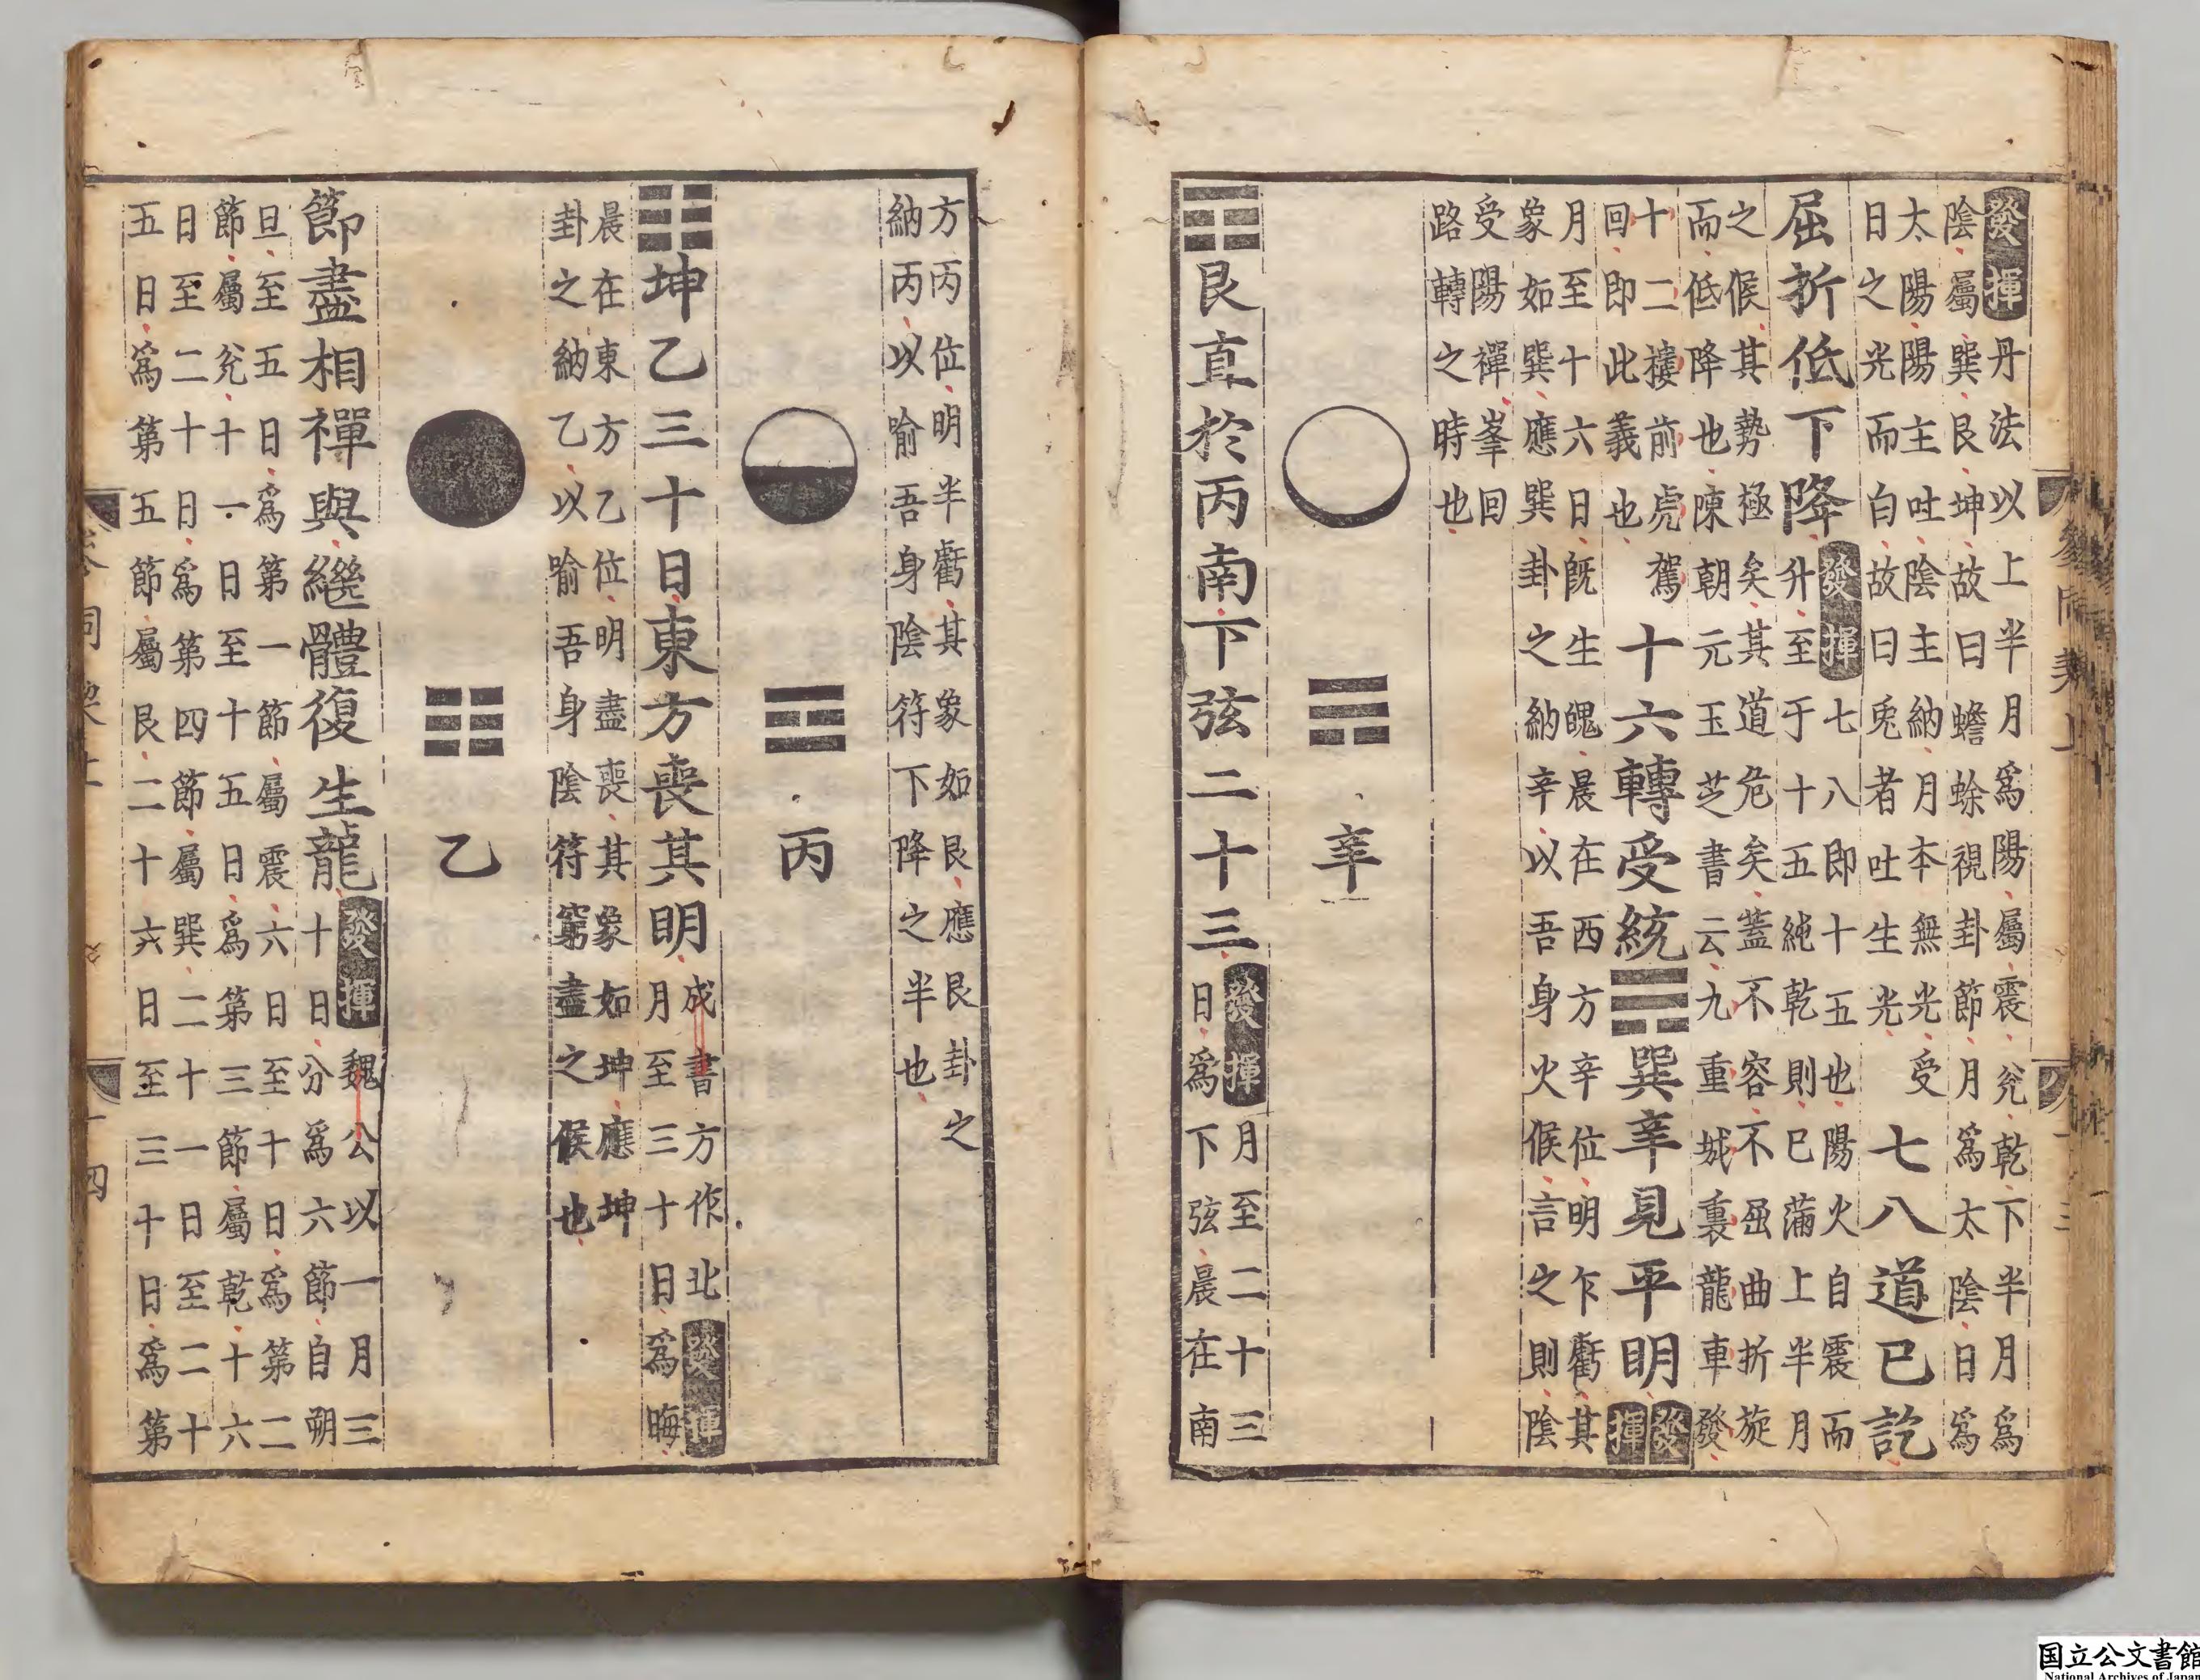 發揮丹法以上半月爲陽屬震兊乾下半月爲
陰屬巽艮坤故曰蟾蜍視卦節月爲太陰日爲
太陽陽主吐陰主納月本無光受
日之光而白故曰兎者吐生光
七八道已訖
屈折低下降
發揮七八即十五也陽火自震而
升至于十五純乾則已滿上半月
之候其勢極矣其道危矣蓋不容不屈曲折旋
而低降也陳朝元玉芝書云九重城裏龍車發
十二樓前虎駕
回即此義也
十六轉受統☴巽辛見平明
發揮
月至十六日旣生魄晨在西方辛位明乍虧其
象如巽應巽卦之納辛以吾身火候言之則陰
受陽禪峯回
路轉之時也
☴
辛
☶艮直於丙南下弦二十三
發揮月至二十三
日爲下弦晨在南
方丙位明半虧其象如艮應艮卦之
納丙以喻吾身陰符下降之半也
☶
丙
☷坤乙三十日東方喪其明
成書方作北發揮
月至三十日爲晦
晨在東方乙位明盡喪其象如坤應坤
卦之納乙以喻吾身陰符窮盡之候也
☷
乙
節盡相禪與繼體復生龍
發揮魏公以一月三
十日分爲六節自朔
旦至五日爲第一節屬震六日至十日爲第二
節屬兊十一日至十五日爲第三節屬乾十六
日至二十日爲第四節屬巽二十一日至二十
五日爲第五節屬艮二十六日至三十日爲第
国立公文書館
National Archives of Japan